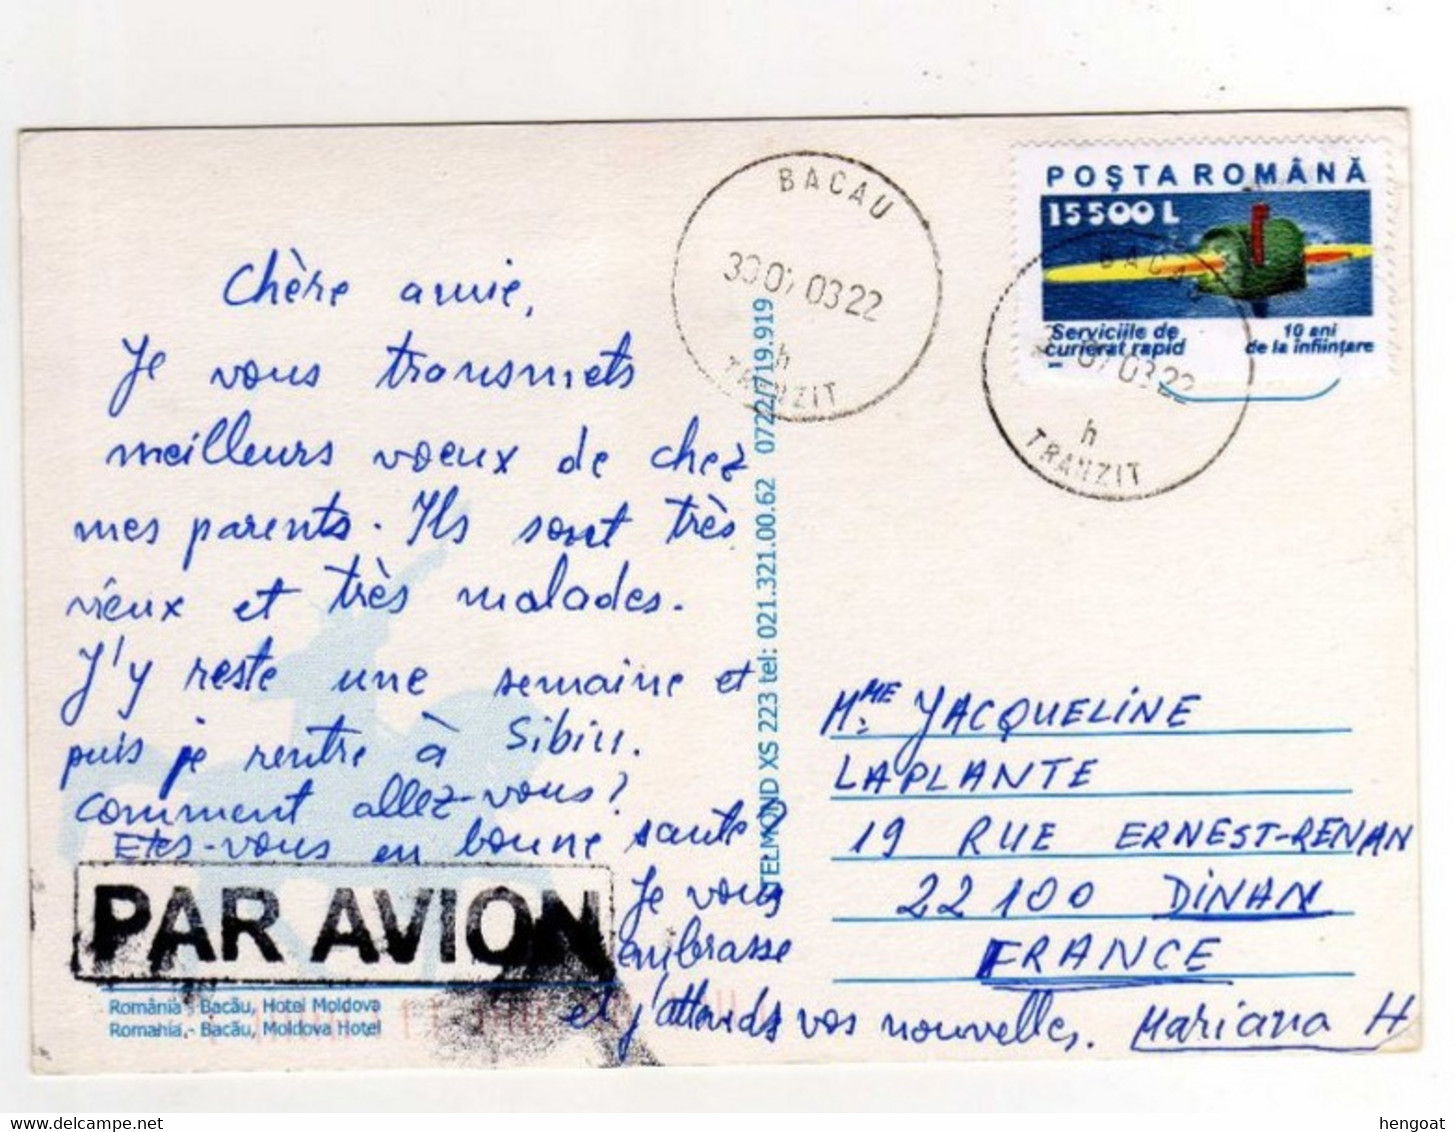 Chère amie,
Je vous transmets
meilleurs voeux de chez
mes parents. Ils sont très
vieux et très malades.
J'y reste une semaine et
puis je rentre à Sibiu.
Comment allez-vous?
Etes-vous en bonne sante?
Je vous
embrasse
et j'attends vos nouvelles. Mariana H
PAR AVION
România - Bacău, Hotel Moldova
Romania, - Bacău, Moldova Hotel
TELMOND XS 223 tel: 021.321.00.62 0722/719.919
BACAU
30 07 03 22
h
TRANZIT
POŞTA ROMÂNĂ
15500 L
Serviciile de
curierat rapid
10 ani
de la înfiinţare
BACAU
07 03 22
h
TRANZIT
MME JACQUELINE
LAPLANTE
19 RUE ERNEST-RENAN
22100 DINAN
FRANCE
delcampe.net
hengoat